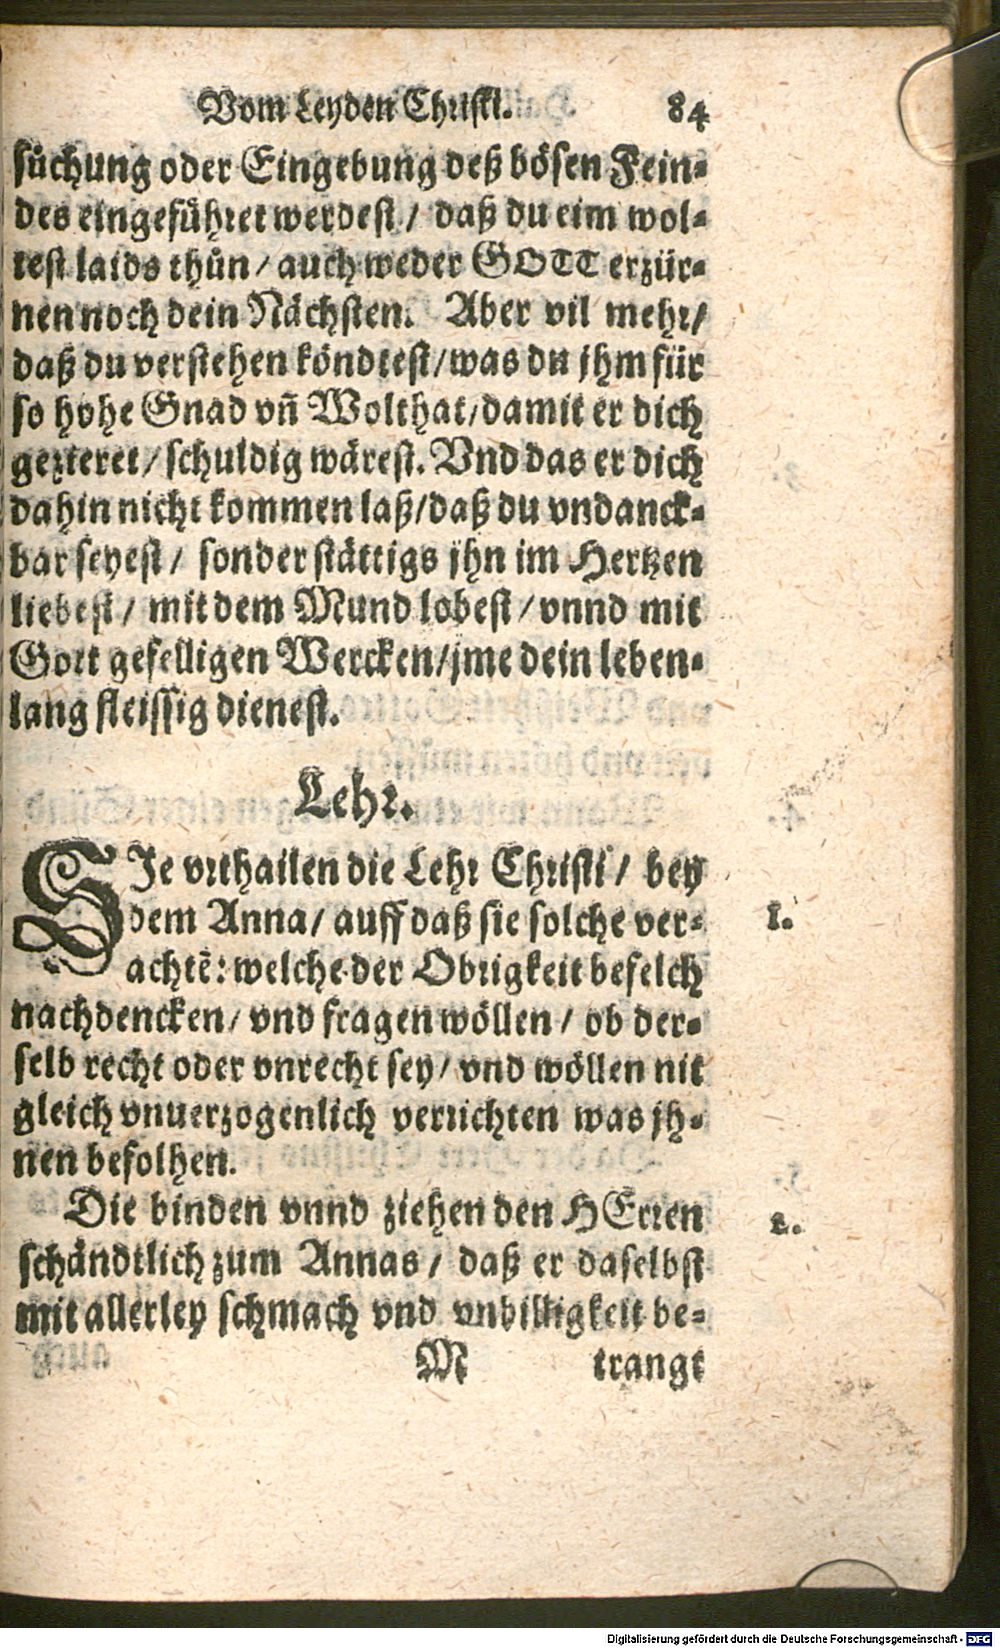 Vom Leyden Christi. 84
sůchung oder Eingebung deß bösen Fein-
des eingeführet werdest / daß du eim wol-
test laids thůn / auch weder GOTT erzür-
nen noch dein Nächsten. Aber vil mehr/
daß du verstehen köndtest/was du jhm für
so hohe Gnad vñ Wolthat/damit er dich
gezieret/ schuldig wärest. Vnd das er dich
dahin nicht kommen laß/daß du vndanck-
bar seyest / sonder stättigs jhn im Hertzen
liebest / mit dem Mund lobest / vnnd mit
Gott gefelligen Wercken/jme dein leben-
lang fleissig dienest.
Lehr.
SIe vrthailen die Lehr Christi / bey
dem Anna/ auff daß sie solche ver-
achtẽ: welche der Obrigkeit befelch
nachdencken/ vnd fragen wöllen / ob der-
selb recht oder vnrecht sey/ vnd wöllen nit
gleich vnuerzogenlich verrichten was jh-
nen befolhen.
1.
Die binden vnnd ziehen den HErren
schändtlich zum Annas / daß er daselbst
mit allerley schmach vnd vnbilligkeit be-
2.
M trangt
Digitalisierung gefördert durch die Deutsche Forschungsgemeinschaft - DFG